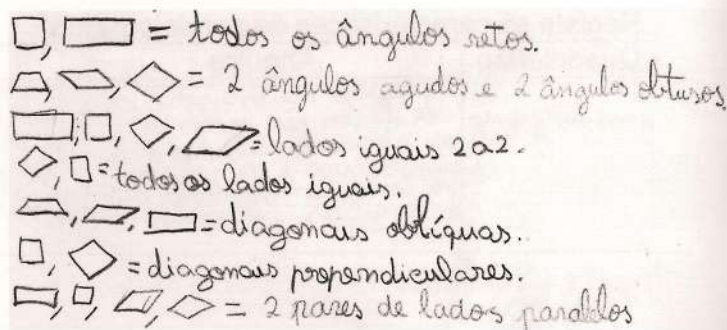 = todos os ângulos retos.
= 2 ângulos agudos e 2 ângulos obtusos
= lados iguais 2 a 2.
= todos os lados iguais.
= diagonais oblíquas.
= diagonais propendiculares.
= 2 pares de lados paralelos